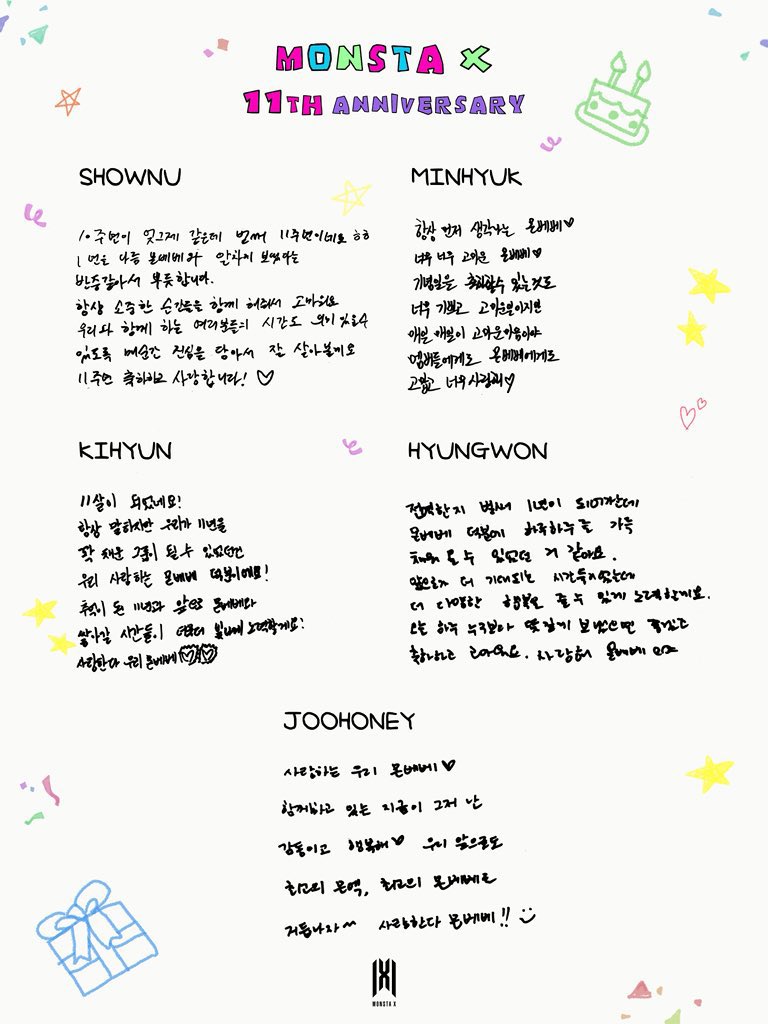 MONSTA X
11TH ANNIVERSARY
SHOWNU
10주년이 엊그제 같은데 벌써 11주년이네요 ㅎㅎ
1년은 나름 몬베베와 알차게 보냈다는
반증같아서 뿌듯합니다.
항상 소중한 순간들을 함께 해줘서 고마워요
우리와 함께 하는 여러분들의 시간도 의미있을수
있도록 매순간 진심을 담아서 잘 살아볼게요
11주년 축하하고 사랑합니다! ♡
MINHYUK
항상 먼저 생각나는 몬베베♡
너무 너무 고마운 몬베베♡
기념일을 축하할수 있는것도
너무 기쁘고 고마운일이지만
매일 매일이 고마운마음이야
멤버들에게도 몬베베에게도
고맙고 너무사랑해♡
KIHYUN
11살이 되었네요!
항상 말하지만 우리가 11년을
꽉 채운 그룹이 될 수 있었던건
우리 사랑하는 몬베베 덕분이에요!
추억이 된 11년과 앞으로 몬베베와
쌓아갈 시간들이 더욱더 빛나게 노력할게요!
사랑한다 우리 몬베베 ♡♡
HYUNGWON
전역한지 벌써 1년이 되어가는데
몬베베 덕분에 하루하루를 가득
채워 올 수 있었던 거 같아요.
앞으로가 더 기대되는 시간들이었는데
더 다양한 행복을 줄 수 있게 노력할게요.
오늘 하루 누구보다 뜻깊게 보냈으면 좋겠고
축하하고 고마워요. 사랑해 몬베베
JOOHONEY
사랑하는 우리 몬베베♡
함께하고 있는 지금이 그저 난
감동이고 행복해♡ 우리 앞으로도
최고의 몬엑, 최고의 몬베베로
거듭나자~ 사랑한다 몬베베!! :)
MONSTA X